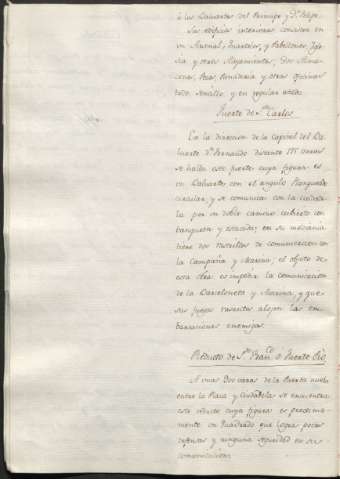 a los Baluartes del Principe y Dn. Felipe.
Sus edificios interiores consisten en
un Arsenal, Quarteles, y Pabellones, Igle-
sia y otros Alojamientos, Dos Alma-
cenes, Panaderia y otras oficinas
todo sencillo y en regular estado.
Fuerte de Sn. Carlos
En la direccion de la Capital del Ba-
luarte Dn. Fernando distante 155 varas
se halla este fuerte cuya figura es
un Baluarte con el angulo flanqueado
circular, y se comunica con la ciudade-
la por un doble camino cubierto con
banqueta y estacada; en su mediania
tiene dos rastrillos de comunicacion con
la Campaña y Marina; el objeto de
esta obra es impedir la comunicacion
de la Barceloneta y Marina, y que
sus fuegos rasantes alejen las em-
barcaciones enemigas.
Reducto de Sn. Franco. ó Fuerte Pio
A unas Dos varas de la Puerta nueva
entre la Plaza y Ciudadela se encuentra
este reducto cuya figura es precisamen-
mente un Quadrado que logra pocas
defensas y ninguna seguridad en su
comunicacion.